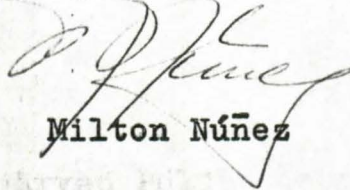 Milton Núñez